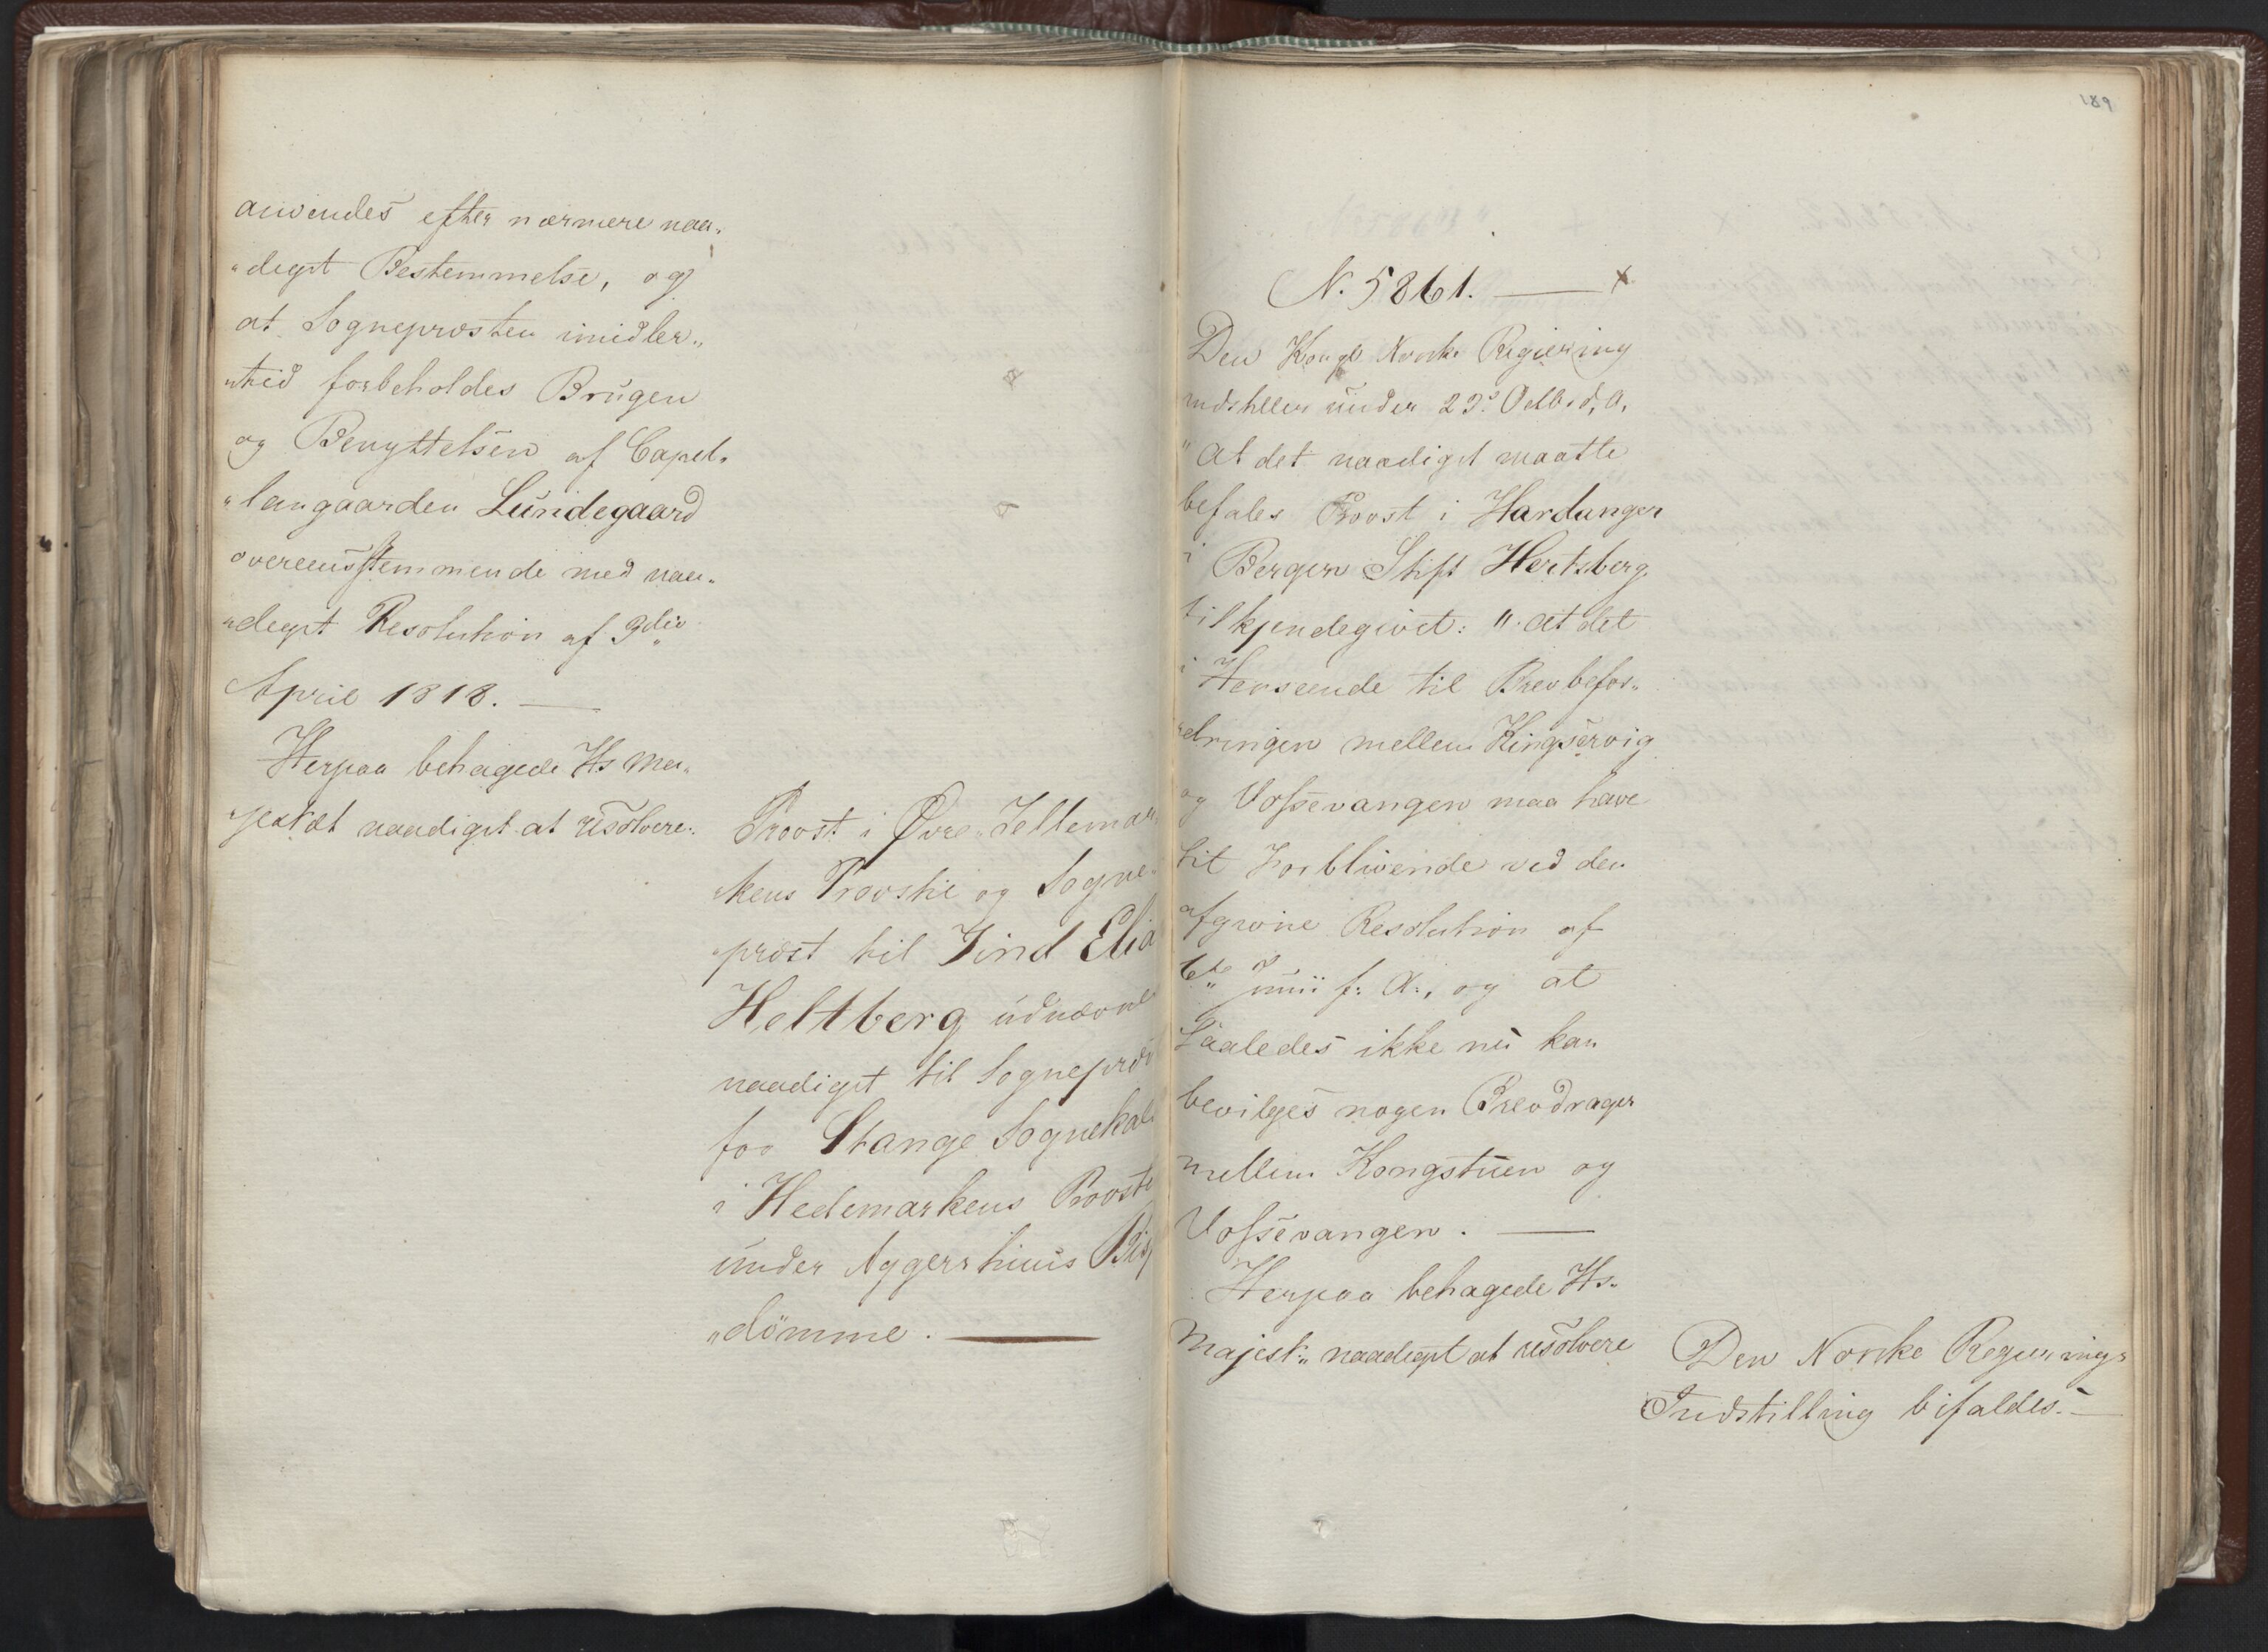 anvendes efter nærmere naa„
„digst Bestemmelse, og
at Sognepræsten imidler„
„tid forbeholdes Brugen
og Benyttelsen af Capel„
„langaarden Lundegaard
overeensstemmende med naa„
„digst Resolution af 9die
April 1818. —
Herpaa behagede Hs Ma„
„jestæt naadigst at resolvere:
Provst i Øvre Tellemar
„kens Provstie og Sogne„
„præst til Find Elia
Heltberg udnævne
naadigst til Sognepræ
for Stange Sognekal
i Hedemarkens Provste
under Aggershuus Bisp
„dömme. —
189
N. 5861. — x
Den Kongl Norske Regiering
indstiller under 23d Octb. d. A.
"at det naadigst maatte
befales Provst i Hardanger
i Bergens Stift Hertzberg
tilkjendegivet: "at det
i Henseende til Brevbefor„
„dringen mellem Kingservig
og Vossevangen maa have
sit Forblivende ved den
afgivne Resolution af
6te Junii f: A:, og at
Saaledes ikke nu kan
bevilges nogen Brevdrager
mellem Kongstuen og
Vossevangen. —
Herpaa behagede Hs.
Majest: naadigst at resolvere
Den Norske Regierings
Indstilling bifaldes. —